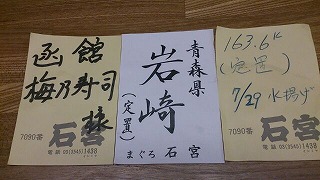 函館
梅乃寿司
様
7090番
石宮
電話 03(3545)1438
青森県
岩崎
(定置)
まぐろ 石宮
163.6K
(定置)
7/29 水揚げ
7090番
石宮
電話 03(3545)1438